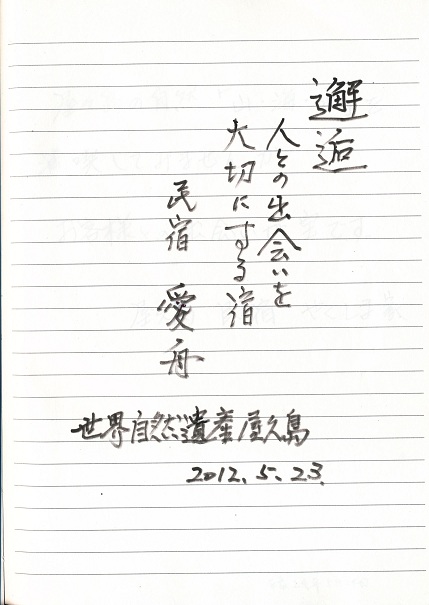 邂逅
人との出会いを
大切にする宿
民宿 愛舟
世界自然遺産屋久島
2012.5.23.